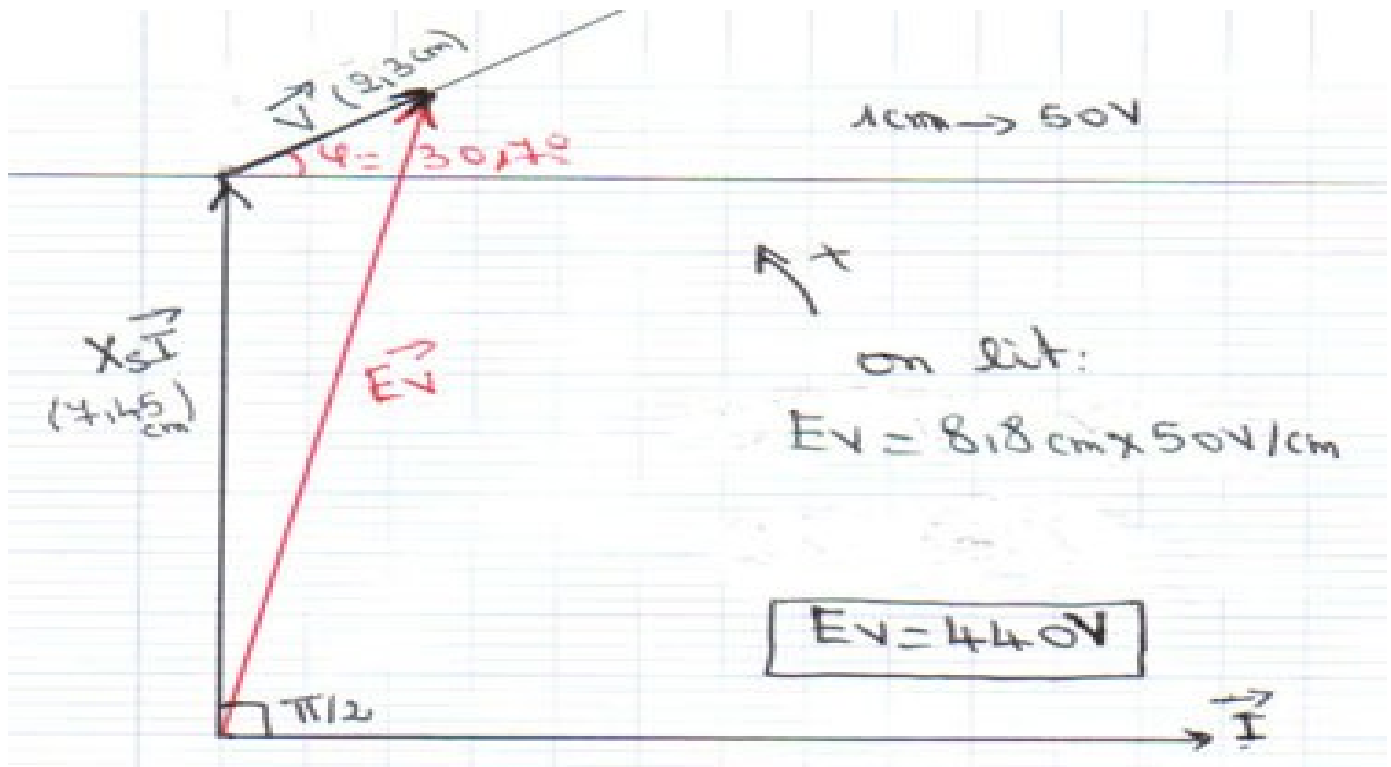 V (2,3 cm)
1cm → 50V
φ = 30,7°
+
XsI
(7,45 cm)
Ev
on lit:
Ev = 8,8 cm x 50V/cm
Ev = 440V
π/2
I